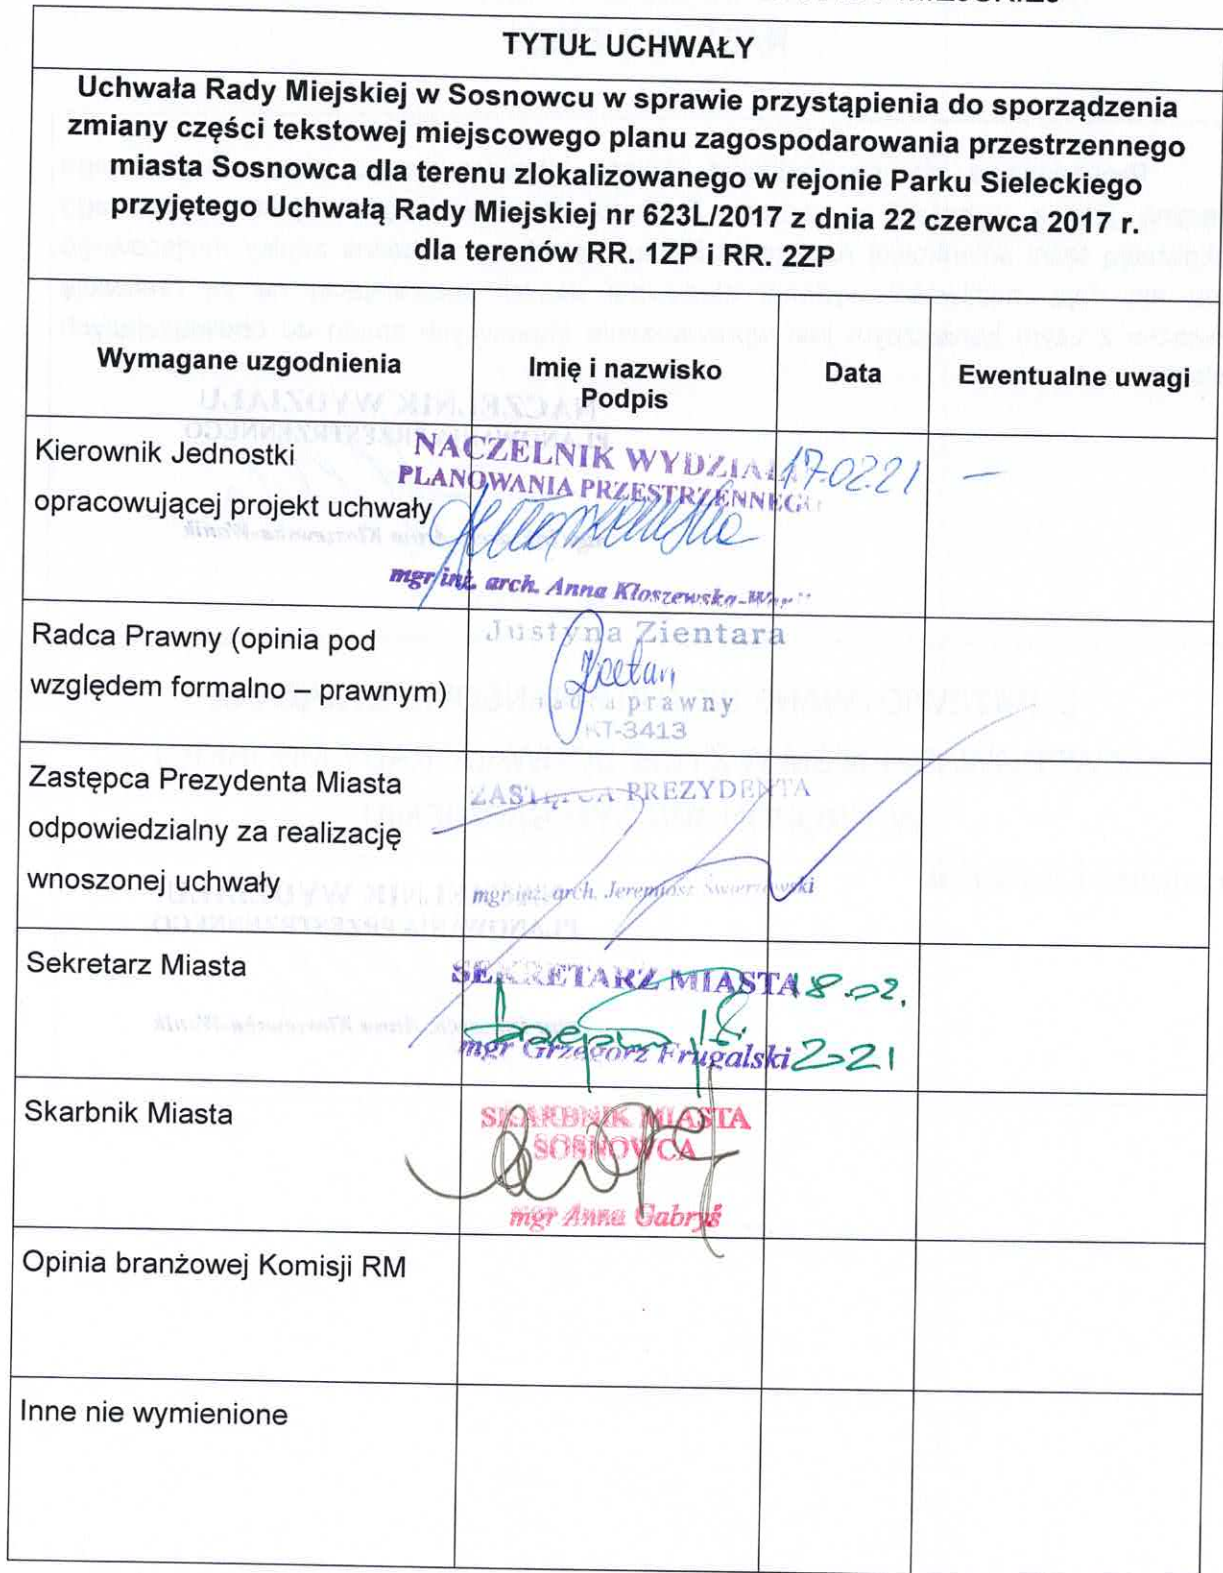 TYTUŁ UCHWAŁY
Uchwała Rady Miejskiej w Sosnowcu w sprawie przystąpienia do sporządzenia
zmiany części tekstowej miejscowego planu zagospodarowania przestrzennego
miasta Sosnowca dla terenu zlokalizowanego w rejonie Parku Sieleckiego
przyjętego Uchwałą Rady Miejskiej nr 623L/2017 z dnia 22 czerwca 2017 r.
dla terenów RR. 1ZP i RR. 2ZP
Wymagane uzgodnienia
Imię i nazwisko
Podpis
Data
Ewentualne uwagi
Kierownik Jednostki
opracowującej projekt uchwały
NACZELNIK WYDZIAŁU
PLANOWANIA PRZESTRZENNEGO
mgr inż. arch. Anna Kłoszewska-
17.02.21
–
Radca Prawny (opinia pod
względem formalno – prawnym)
Justyna Zientara
radca prawny
KT-3413
Zastępca Prezydenta Miasta
odpowiedzialny za realizację
wnoszonej uchwały
ZASTĘPCA PREZYDENTA
mgr inż. arch. Jeremiasz Świerzawski
Sekretarz Miasta
SEKRETARZ MIASTA
mgr Grzegorz Frugalski
18.02.
2021
Skarbnik Miasta
SKARBNIK MIASTA
SOSNOWCA
mgr Anna Gabryś
Opinia branżowej Komisji RM
Inne nie wymienione